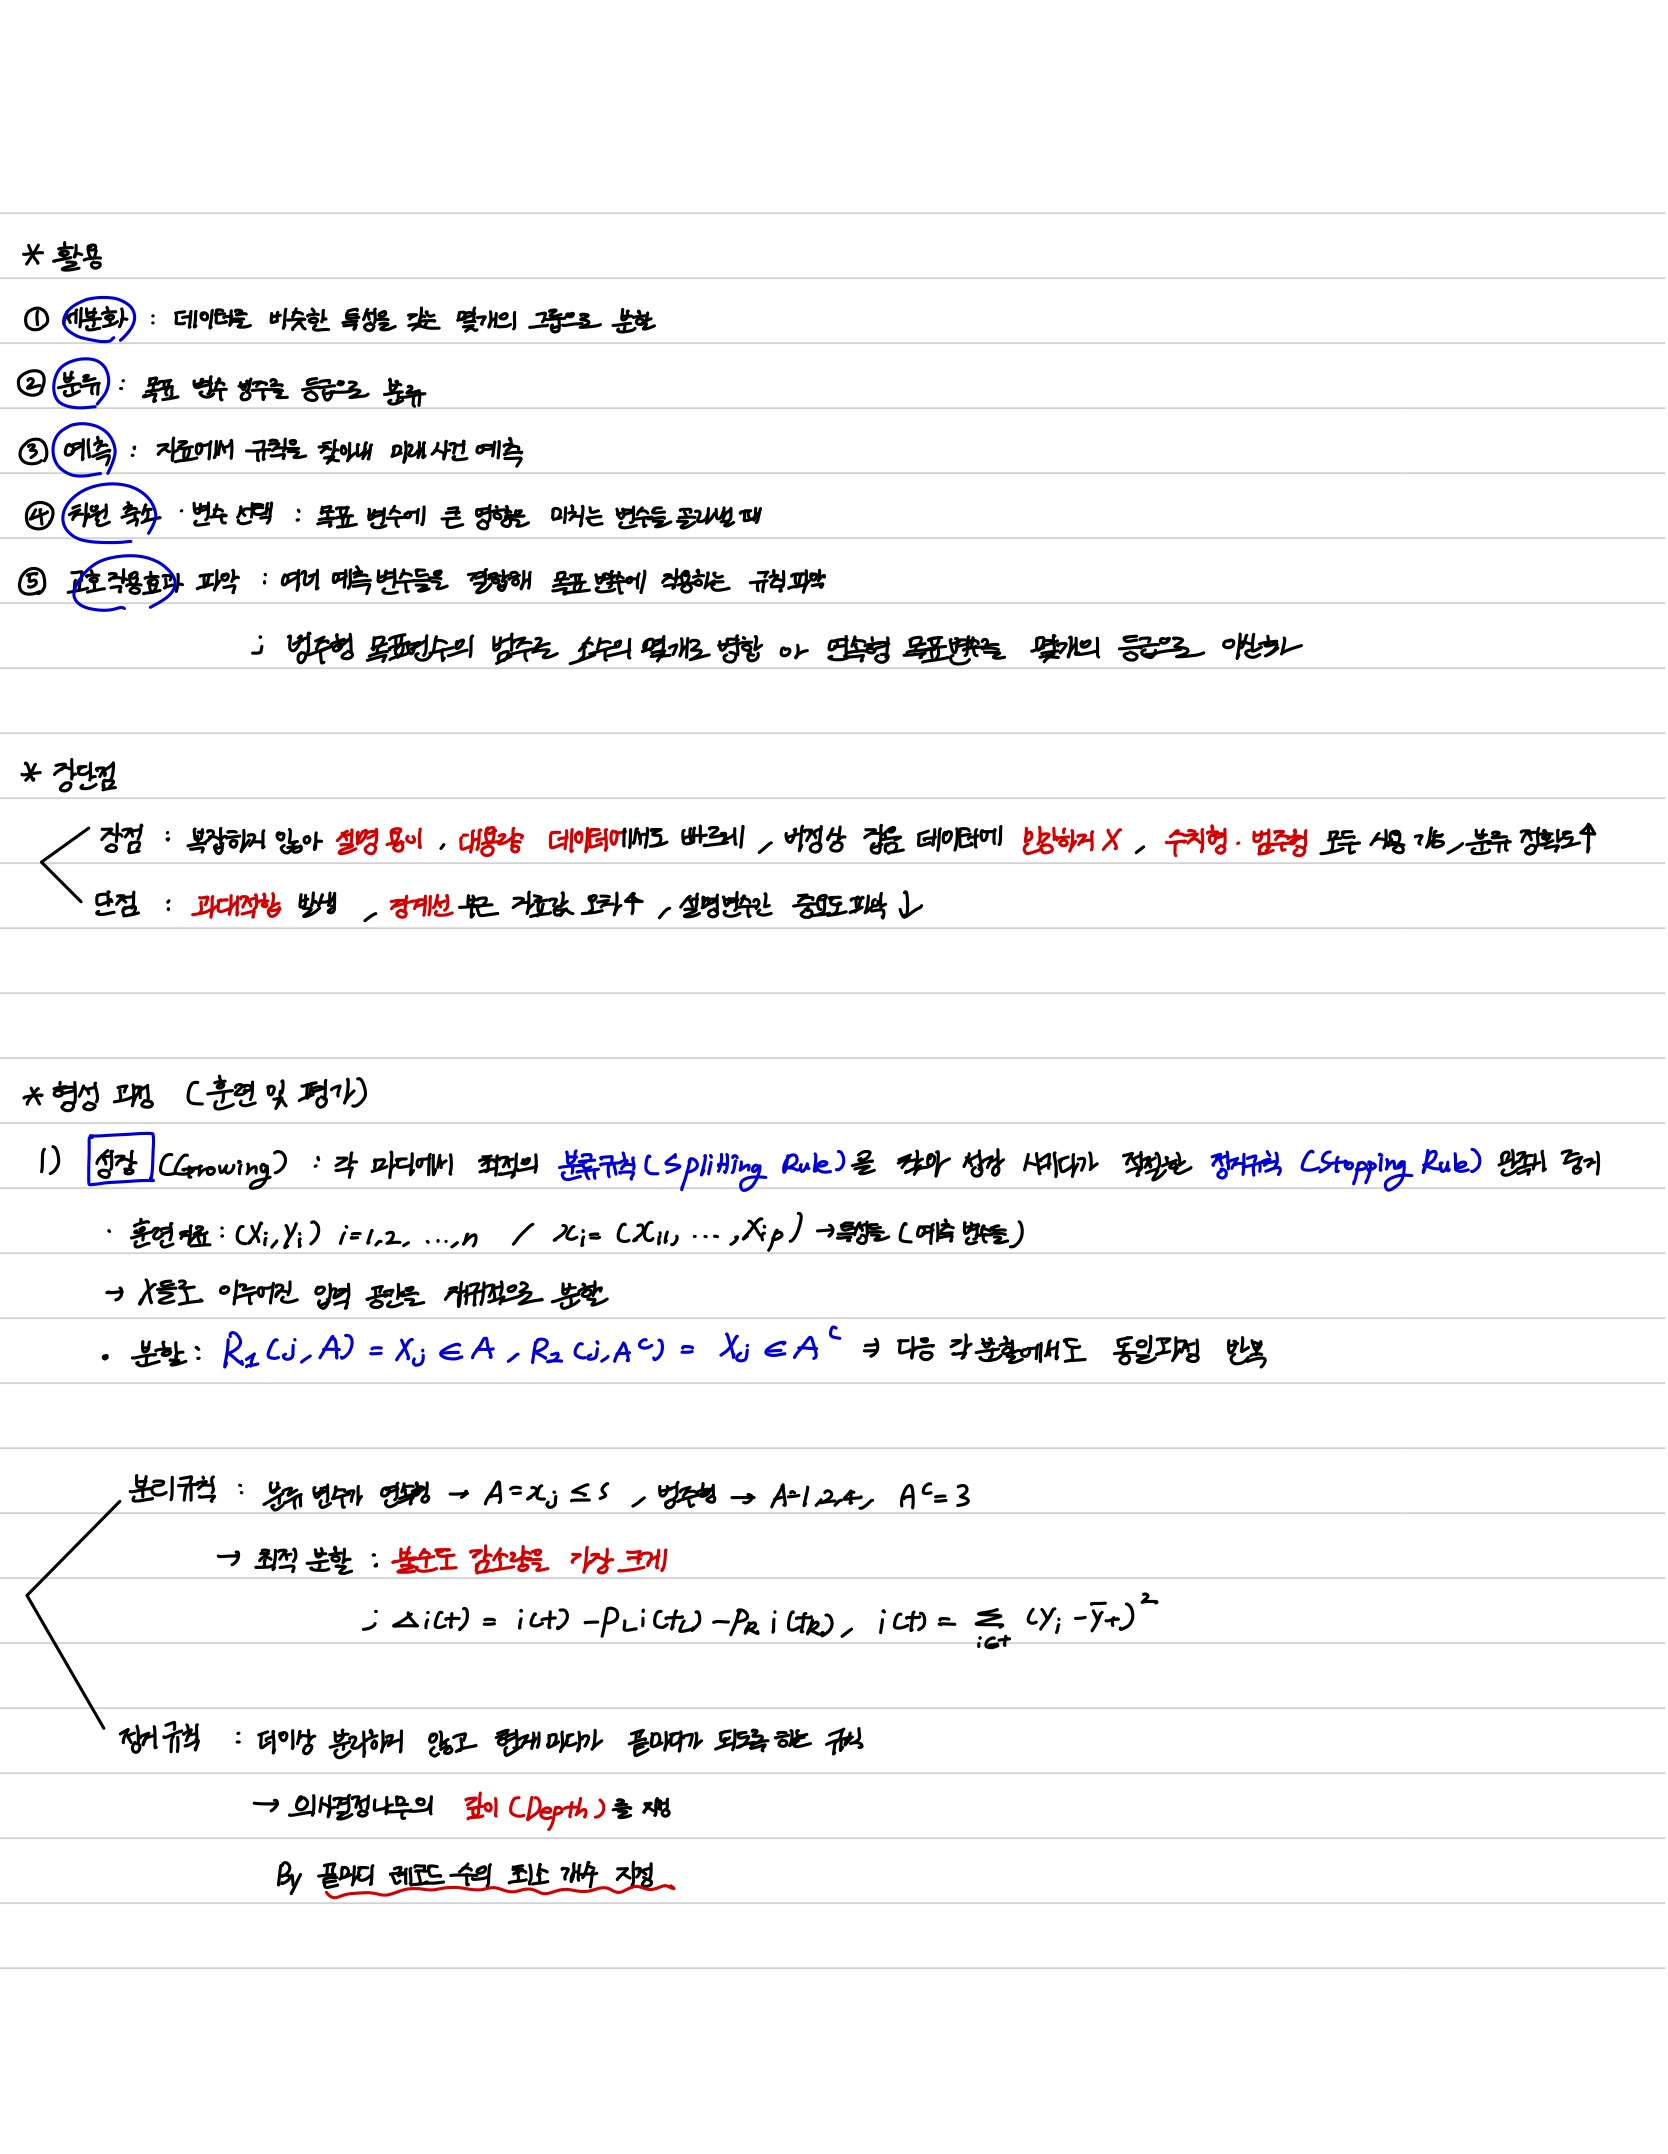 * 활용
① 세분화 : 데이터를 비슷한 특성을 갖는 몇개의 그룹으로 분할
② 분류 : 목표 변수 범주를 등급으로 분류
③ 예측 : 자료에서 규칙을 찾아내 미래 사건 예측
④ 차원 축소 · 변수 선택 : 목표 변수에 큰 영향을 미치는 변수들 골라낼 때
⑤ 교호작용효과 파악 : 여러 예측변수들을 결합해 목표변수에 작용하는 규칙파악
; 범주형 목표변수의 범주를 소수의 몇개로 병합 or 연속형 목표변수를 몇개의 등급으로 이산화
* 장단점
장점 : 복잡하지 않아 설명 용이, 대용량 데이터에서도 빠르게, 비정상 잡음 데이터에 민감하지 X, 수치형·범주형 모두 사용 가능, 분류 정확도↑
단점 : 과대적합 발생, 경계선 부근 자료값 오차↑, 설명변수간 중요도 파악↓
* 형성 과정 (훈련 및 평가)
1) 성장 (Growing) : 각 마디에서 최적의 분류규칙(Splitting Rule)을 찾아 성장 시키다가 적절한 정지규칙 (Stopping Rule) 만족시 중지
· 훈련자료 : (Xi, Yi) i=1,2, ..., n / xi = (x11, ..., Xip) → 특성들 (예측 변수들)
→ X들로 이루어진 입력 공간을 재귀적으로 분할
• 분할 : R1 (j, A) = Xj ∈ A, R2 (j, A^c) = Xj ∈ A^c ⇒ 다음 각 분할에서도 동일과정 반복
분리규칙 : 분류 변수가 연속형 → A = xj ≤ s, 범주형 → A=1,2,4, A^c = 3
→ 최적 분할 : 불순도 감소량을 가장 크게
; Δi(t) = i(t) - PL i(tL) - PR i(tR), i(t) = Σ i∈t (yi - ȳt)²
정지규칙 : 더이상 분리하지 않고 현재마디가 끝마디가 되도록 하는 규칙
→ 의사결정나무의 깊이 (Depth)를 지정
By 끝마디 레코드 수의 최소 개수 지정